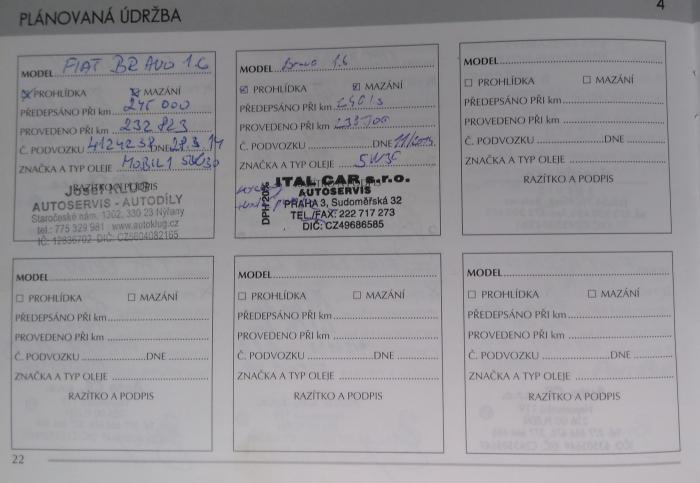 PLÁNOVANÁ ÚDRŽBA
4
MODEL FIAT BRAVO 1.6
PROHLÍDKA MAZÁNÍ
PŘEDEPSÁNO PŘI km 245 000
PROVEDENO PŘI km 232 823
Č. PODVOZKU 4124238 DNE 28.3.14
ZNAČKA A TYP OLEJE MOBIL 1 5W30
RAZÍTKO A PODPIS
Josef KLUG
AUTOSERVIS - AUTODÍLY
Staročeské nám. 1302, 330 23 Nýřany
tel.: 775 329 981 www.autoklug.cz
IČ: 12836702 DIČ: CZ5604082165
MODEL Bravo 1.6
PROHLÍDKA MAZÁNÍ
PŘEDEPSÁNO PŘI km
PROVEDENO PŘI km
Č. PODVOZKU DNE
ZNAČKA A TYP OLEJE 5W30
ITAL CAR s.r.o.
AUTOSERVIS
PRAHA 3, Sudoměřská 32
TEL./FAX: 222 717 273
DIČ: CZ49686585
DPH 20%
MODEL
PROHLÍDKA MAZÁNÍ
PŘEDEPSÁNO PŘI km
PROVEDENO PŘI km
Č. PODVOZKU DNE
ZNAČKA A TYP OLEJE
RAZÍTKO A PODPIS
MODEL
PROHLÍDKA MAZÁNÍ
PŘEDEPSÁNO PŘI km
PROVEDENO PŘI km
Č. PODVOZKU DNE
ZNAČKA A TYP OLEJE
RAZÍTKO A PODPIS
MODEL
PROHLÍDKA MAZÁNÍ
PŘEDEPSÁNO PŘI km
PROVEDENO PŘI km
Č. PODVOZKU DNE
ZNAČKA A TYP OLEJE
RAZÍTKO A PODPIS
MODEL
PROHLÍDKA MAZÁNÍ
PŘEDEPSÁNO PŘI km
PROVEDENO PŘI km
Č. PODVOZKU DNE
ZNAČKA A TYP OLEJE
RAZÍTKO A PODPIS
22